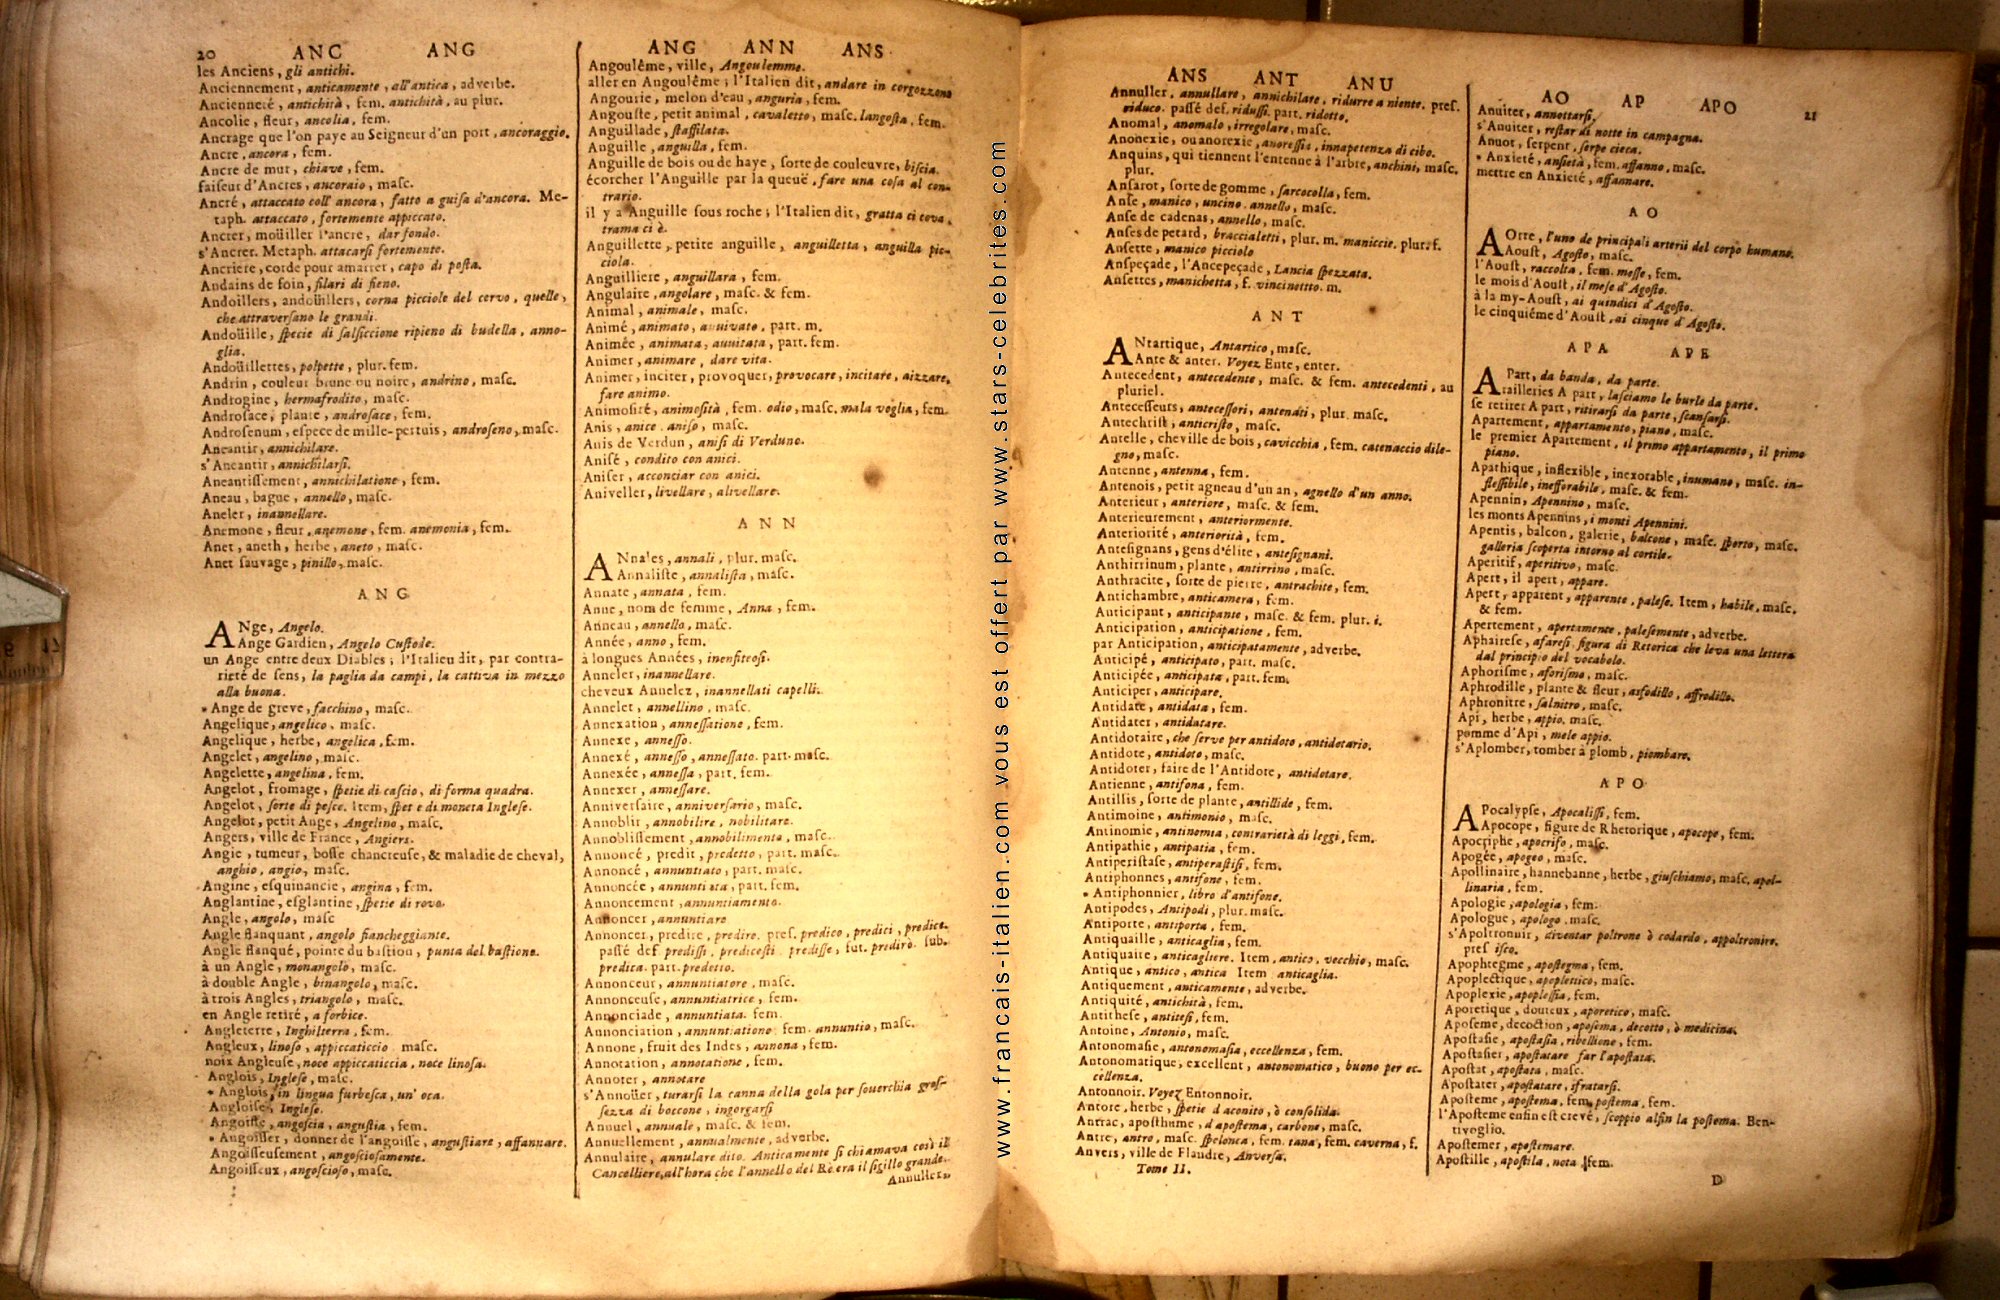 20 ANC ANG
les Anciens, gli antichi.
Anciennement, anticamente, all'antica, adverbe.
Ancienneté, antichità, fem. antichità, au plur.
Ancolie, fleur, ancolia, fem.
Ancrage que l'on paye au Seigneur d'un port, ancoraggio.
Ancre, ancora, fem.
Ancre de mur, chiave, fem.
faiseur d'Ancres, ancoraio, masc.
Ancré, attaccato coll' ancora, fatto a guisa d'ancora. Me-
taph. attaccato, fortemente appiccato.
Ancrer, moüiller l'ancre, dar fondo.
s'Ancrer. Metaph. attacarsi fortemente.
Ancriere, corde pour amarrer, capo di posta.
Andains de foin, filari di fieno.
Andoillers, andoüillers, corna picciole del cervo, quelle,
che attraversano le grandi.
Andoüille, specie di salsiccione ripieno di budella, anno-
glia.
Andoüillettes, polpette, plur. fem.
Andrin, couleur brune ou noire, andrino, masc.
Androgine, hermafrodito, masc.
Androsace, plante, androsace, fem.
Androsenum, espece de mille-pertuis, androseno, masc.
Aneantir, annichilare.
s'Aneantir, annichilarsi.
Aneantissement, annichilatione, fem.
Aneau, bague, annello, masc.
Aneler, inannellare.
Anemone, fleur, anemone, fem. anemonia, fem.
Anet, aneth, herbe, aneto, masc.
Anet sauvage, pinillo, masc.
ANG
ANge, Angelo.
Ange Gardien, Angelo Custode.
un Ange entre deux Diables; l'Italien dit, par contra-
rieté de sens, la paglia da campi, la cattiva in mezzo
alla buona.
* Ange de greve, facchino, masc.
Angelique, angelico, masc.
Angelique, herbe, angelica, fem.
Angelet, angelino, masc.
Angelette, angelina, fem.
Angelot, fromage, spetie di cascio, di forma quadra.
Angelot, sorte di pesce. Item, spetie di moneta Inglese.
Angelot, petit Ange, Angelino, masc.
Angers, ville de France, Angiers.
Angie, tumeur, bosse chancreuse, & maladie de cheval,
anghio, angio, masc.
Angine, esquinancie, angina, fem.
Anglantine, esglantine, spetie di rovo.
Angle, angolo, masc
Angle flanquant, angolo fiancheggiante.
Angle flanqué, pointe du bastion, punta del bastione.
à un Angle, monangolo, masc.
à double Angle, binangolo, masc.
à trois Angles, triangolo, masc.
en Angle retiré, a forbice.
Angleterre, Inghilterra, fem.
Angleux, linoso, appiccaticcio masc.
noix Angleuse, noce appiccaticcia, noce linosa.
Anglois, Inglese, masc.
* Anglois, in lingua furbesca, un' oca.
Angloise, Inglese.
Angoisse, angoscia, angustia, fem.
* Angoisser, donner de l'angoisse, angustiare, affannare.
Angoisseusement, angosciosamente.
Angoisseux, angoscioso, masc.
ANG ANN ANS
Angoulême, ville, Angoulemme.
aller en Angoulême; l'Italien dit, andare in corgozzone
Angourie, melon d'eau, anguria, fem.
Angouste, petit animal, cavaletto, masc. langosta, fem.
Anguillade, staffilata.
Anguille, anguilla, fem.
Anguille de bois ou de haye, sorte de couleuvre, biscia.
écorcher l'Anguille par la queuë, fare una cosa al con-
trario.
il y a Anguille sous roche; l'Italien dit, gratta ci cova,
trama ci è.
Anguillette, petite anguille, anguilletta, anguilla pic-
ciola.
Anguilliere, anguillara, fem.
Angulaire, angolare, masc. & fem.
Animal, animale, masc.
Animé, animato, avvivato, part. m.
Animée, animata, avvivata, part. fem.
Animer, animare, dare vita.
Animer, inciter, provoquer, provocare, incitare, aizzare,
fare animo.
Animosité, animosità, fem. odio, masc. mala voglia, fem.
Anis, anice. aniso, masc.
Anis de Verdun, anisi di Verduno.
Anisé, condito con anici.
Aniser, acconciar con anici.
Aniveller, livellare, alivellare.
ANN
ANnales, annali, plur. masc.
Annaliste, annalista, masc.
Annate, annata, fem.
Anne, nom de femme, Anna, fem.
Anneau, annello, masc.
Année, anno, fem.
à longues Années, inenfitrosi.
Anneler, inannellare.
cheveux Annelez, inannellati capelli.
Annelet, annellino, masc.
Annexation, annessatione, fem.
Annexe, annesso.
Annexé, annesso, annessato. part. masc.
Annexée, annessa, part. fem.
Annexer, annessare.
Anniversaire, anniversario, masc.
Annoblir, annobilire, nobilitare.
Annoblissement, annobilimento, masc.
Annoncé, predit, predetto, part. masc.
Annoncé, annuntiato, part. masc.
Annoncée, annuntiata, part. fem.
Annoncement, annuntiamento.
Annoncer, annuntiare
Annoncer, predire, predire. pres. predico, predici, predice.
passé def. predissi, predicesti predisse, fut. prediro. sub.
predica. part. predetto.
Annonceur, annuntiatore, masc.
Annonceuse, annuntiatrice, fem.
Annonciade, annuntiata. fem.
Annonciation, annuntiatione fem. annuntio, masc.
Annone, fruit des Indes, annona, fem.
Annotation, annotatione, fem.
Annoter, annotare
s'Annoüer, turarsi la canna della gola per soverchia gros-
sezza di boccone, ingorgarsi
Annuel, annuale, masc. & fem.
Annuellement, annualmente, adverbe.
Annulaire, annulare dito. Anticamente si chiamava così il
Cancelliere, all'hora che l'annello del Re era il sigillo grande.
Annuller,
ANS ANT ANU
Annuller, annullare, annichilare, ridurre a niente. pres.
riduco. passé def. ridussi. part. ridotto.
Anomal, anomalo, irregolare, masc.
Anonexie, ou anorexie, anoressia, innapetenza di cibo.
Anquins, qui tiennent l'entenne à l'arbre, anchini, masc.
plur.
Ansarot, sorte de gomme, sarcocolla, fem.
Anse, manico, uncino. annello, masc.
Anse de cadenas, annello, masc.
Anses de petard, braccialetti, plur. m. maniccie. plur. f.
Ansette, manico picciolo
Anspeçade, l'Ancepeçade, Lancia spezzata.
Ansettes, manichetta, f. vincinottto. m.
ANT
ANtartique, Antartico, masc.
Ante & anter. Voyez Ente, enter.
Antecedent, antecedente, masc. & fem. antecedenti, au
pluriel.
Antecesseurs, antecessori, antenati, plur. masc.
Antechrist, anticristo, masc.
Antelle, cheville de bois, cavicchia, fem. catenaccio di le-
gno, masc.
Antenne, antenna, fem.
Antenois, petit agneau d'un an, agnello d'un anno.
Anterieur, anteriore, masc. & fem.
Anterieurement, anteriormente.
Anteriorité, anteriorità, fem.
Antesignans, gens d'élite, antesignani.
Anthirrinum, plante, antirrino, masc.
Anthracite, sorte de pierre, antrachite, fem.
Antichambre, anticamera, fem.
Anticipant, anticipante, masc. & fem. plur. i.
Anticipation, anticipatione, fem.
par Anticipation, anticipatamente, adverbe.
Anticipé, anticipato, part. masc.
Anticipée, anticipata, part. fem.
Anticiper, anticipare.
Antidate, antidata, fem.
Antidater, antidatare.
Antidotaire, che serve per antidoto, antidotario.
Antidote, antidoto, masc.
Antidoter, faire de l'Antidote, antidotare.
Antienne, antifona, fem.
Antillis, sorte de plante, antillide, fem.
Antimoine, antimonio, masc.
Antinomie, antinomia, contrarietà di leggi, fem.
Antipathie, antipatia, fem.
Antiperistase, antiperastisi, fem.
Antiphonnes, antifone, fem.
* Antiphonnier, libro d'antifone.
Antipodes, Antipodi, plur. masc.
Antiporte, antiporta, fem.
Antiquaille, anticaglia, fem.
Antiquaire, anticagliere. Item, antico, vecchio, masc.
Antique, antico, antica Item anticaglia.
Antiquement, anticamente, adverbe.
Antiquité, antichità, fem.
Antithese, antitesi, fem.
Antoine, Antonio, masc.
Antonomasie, antonomasia, eccellenza, fem.
Antonomatique, excellent, antonomatico, buono per ec-
cellenza.
Antonnoir. Voyez Entonnoir.
Antore, herbe, spetie d'aconito, ò consolida.
Antrac, aposthume, d'apostema, carbone, masc.
Antre, antro, masc. spelonca, fem. tana, fem. caverna, f.
Anvers, ville de Flandre, Anversa.
Tome II.
AO AP APO 21
Anuiter, annottarsi.
s'Anuiter, restar di notte in campagna.
Anuot, serpent, serpe cieca.
* Anxieté, ansietà, fem. affanno, masc.
mettre en Anxieté, affannare.
AO
AOrte, l'uno de principali arterii del corpo humano.
Aoust, Agosto, masc.
l'Aoust, raccolta, fem. messe, fem.
le mois d'Aoust, il mese d'Agosto.
à la my-Aoust, ai quindici d'Agosto.
le cinquiéme d'Aoust, ai cinque d'Agosto.
APA APE
A Part, da banda, da parte.
railleries A part, lasciamo le burle da parte.
se retirer A part, ritirarsi da parte, scansarsi.
Apartement, appartamento, piano, masc.
le premier Apartement, il primo appartamento, il primo
piano.
Apathique, inflexible, inexorable, inumano, masc. in-
flessibile, inesorabile, masc. & fem.
Apennin, Apennino, masc.
les monts Apennins, i monti Apennini.
Apentis, balcon, galerie, balcone, masc. sporto, masc.
galleria scoperta intorno al cortile.
Aperitif, aperitivo, masc.
Apert, il apert, appare.
Apert, apparent, apparente, palese. Item, habile, masc.
& fem.
Apertement, apertamente, palesemente, adverbe.
Aphairese, afaresi, figura di Retorica che leva una lettera
dal principio del vocabolo.
Aphorisme, aforismo, masc.
Aphrodille, plante & fleur, asfodillo, affrodillo.
Aphronitre, salnitro, masc.
Api, herbe, appio. masc.
pomme d'Api, mele appio.
s'Aplomber, tomber à plomb, piombare.
APO
APocalypse, Apocalissi, fem.
Apocope, figure de Rhetorique, apocope, fem.
Apocriphe, apocrifo, masc.
Apogée, apogeo, masc.
Apollinaire, hannebanne, herbe, giuschiamo, masc. apol-
linaria, fem.
Apologie, apologia, fem.
Apologue, apologo. masc.
s'Apoltronnir, diventar poltrone ò codardo, appoltronire.
pres isco.
Apophtegme, apostegma, fem.
Apoplectique, apoplettico, masc.
Apoplexie, apoplessia, fem.
Aporetique, douteux, aporetico, masc.
Aposeme, decoction, aposema, decotto, ò medicina.
Apostasie, apostasia, ribellione, fem.
Apostasier, apostatare far l'apostata.
Apostat, apostata, masc.
Apostater, apostatare, sfratarsi.
Aposteme, apostema, fem. postema, fem.
l'Aposteme enfin est crevé, scoppio alfin la postema. Ben-
tivoglio.
Apostemer, apostemare.
Apostille, apostila, nota, fem.
D
www.francais-italien.com vous est offert par www.stars-celebrites.com